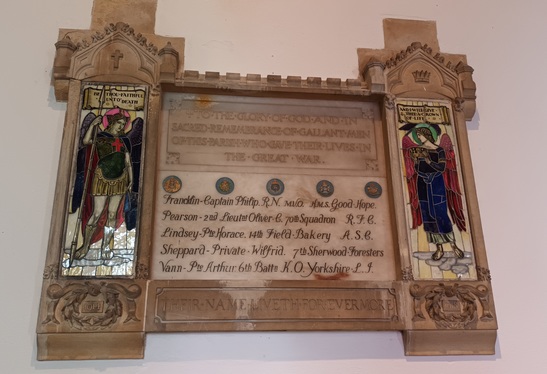 BE THOU FAITHFUL
UNTO DEATH
AND I WILL GIVE
THEE A CROWN
OF LIFE
TO THE GLORY OF GOD AND IN
SACRED REMEMBRANCE OF GALLANT MEN
OF THIS PARISH WHO GAVE THEIR LIVES IN
THE GREAT WAR.
Franklin-Captain Philip. R.N. M.V.O. H.M.S. Good Hope.
Pearson-2nd Lieut. Oliver C. 70th Squadron R.F.C.
Lindsey-Pte Horace. 14th Field-Bakery A.S.C.
Sheppard-Private-Wilfrid. 7th Sherwood Foresters
Vann-Pte Arthur. 6th Battn K.O. Yorkshire L.I.
THEIR NAME LIVETH FOR EVERMORE